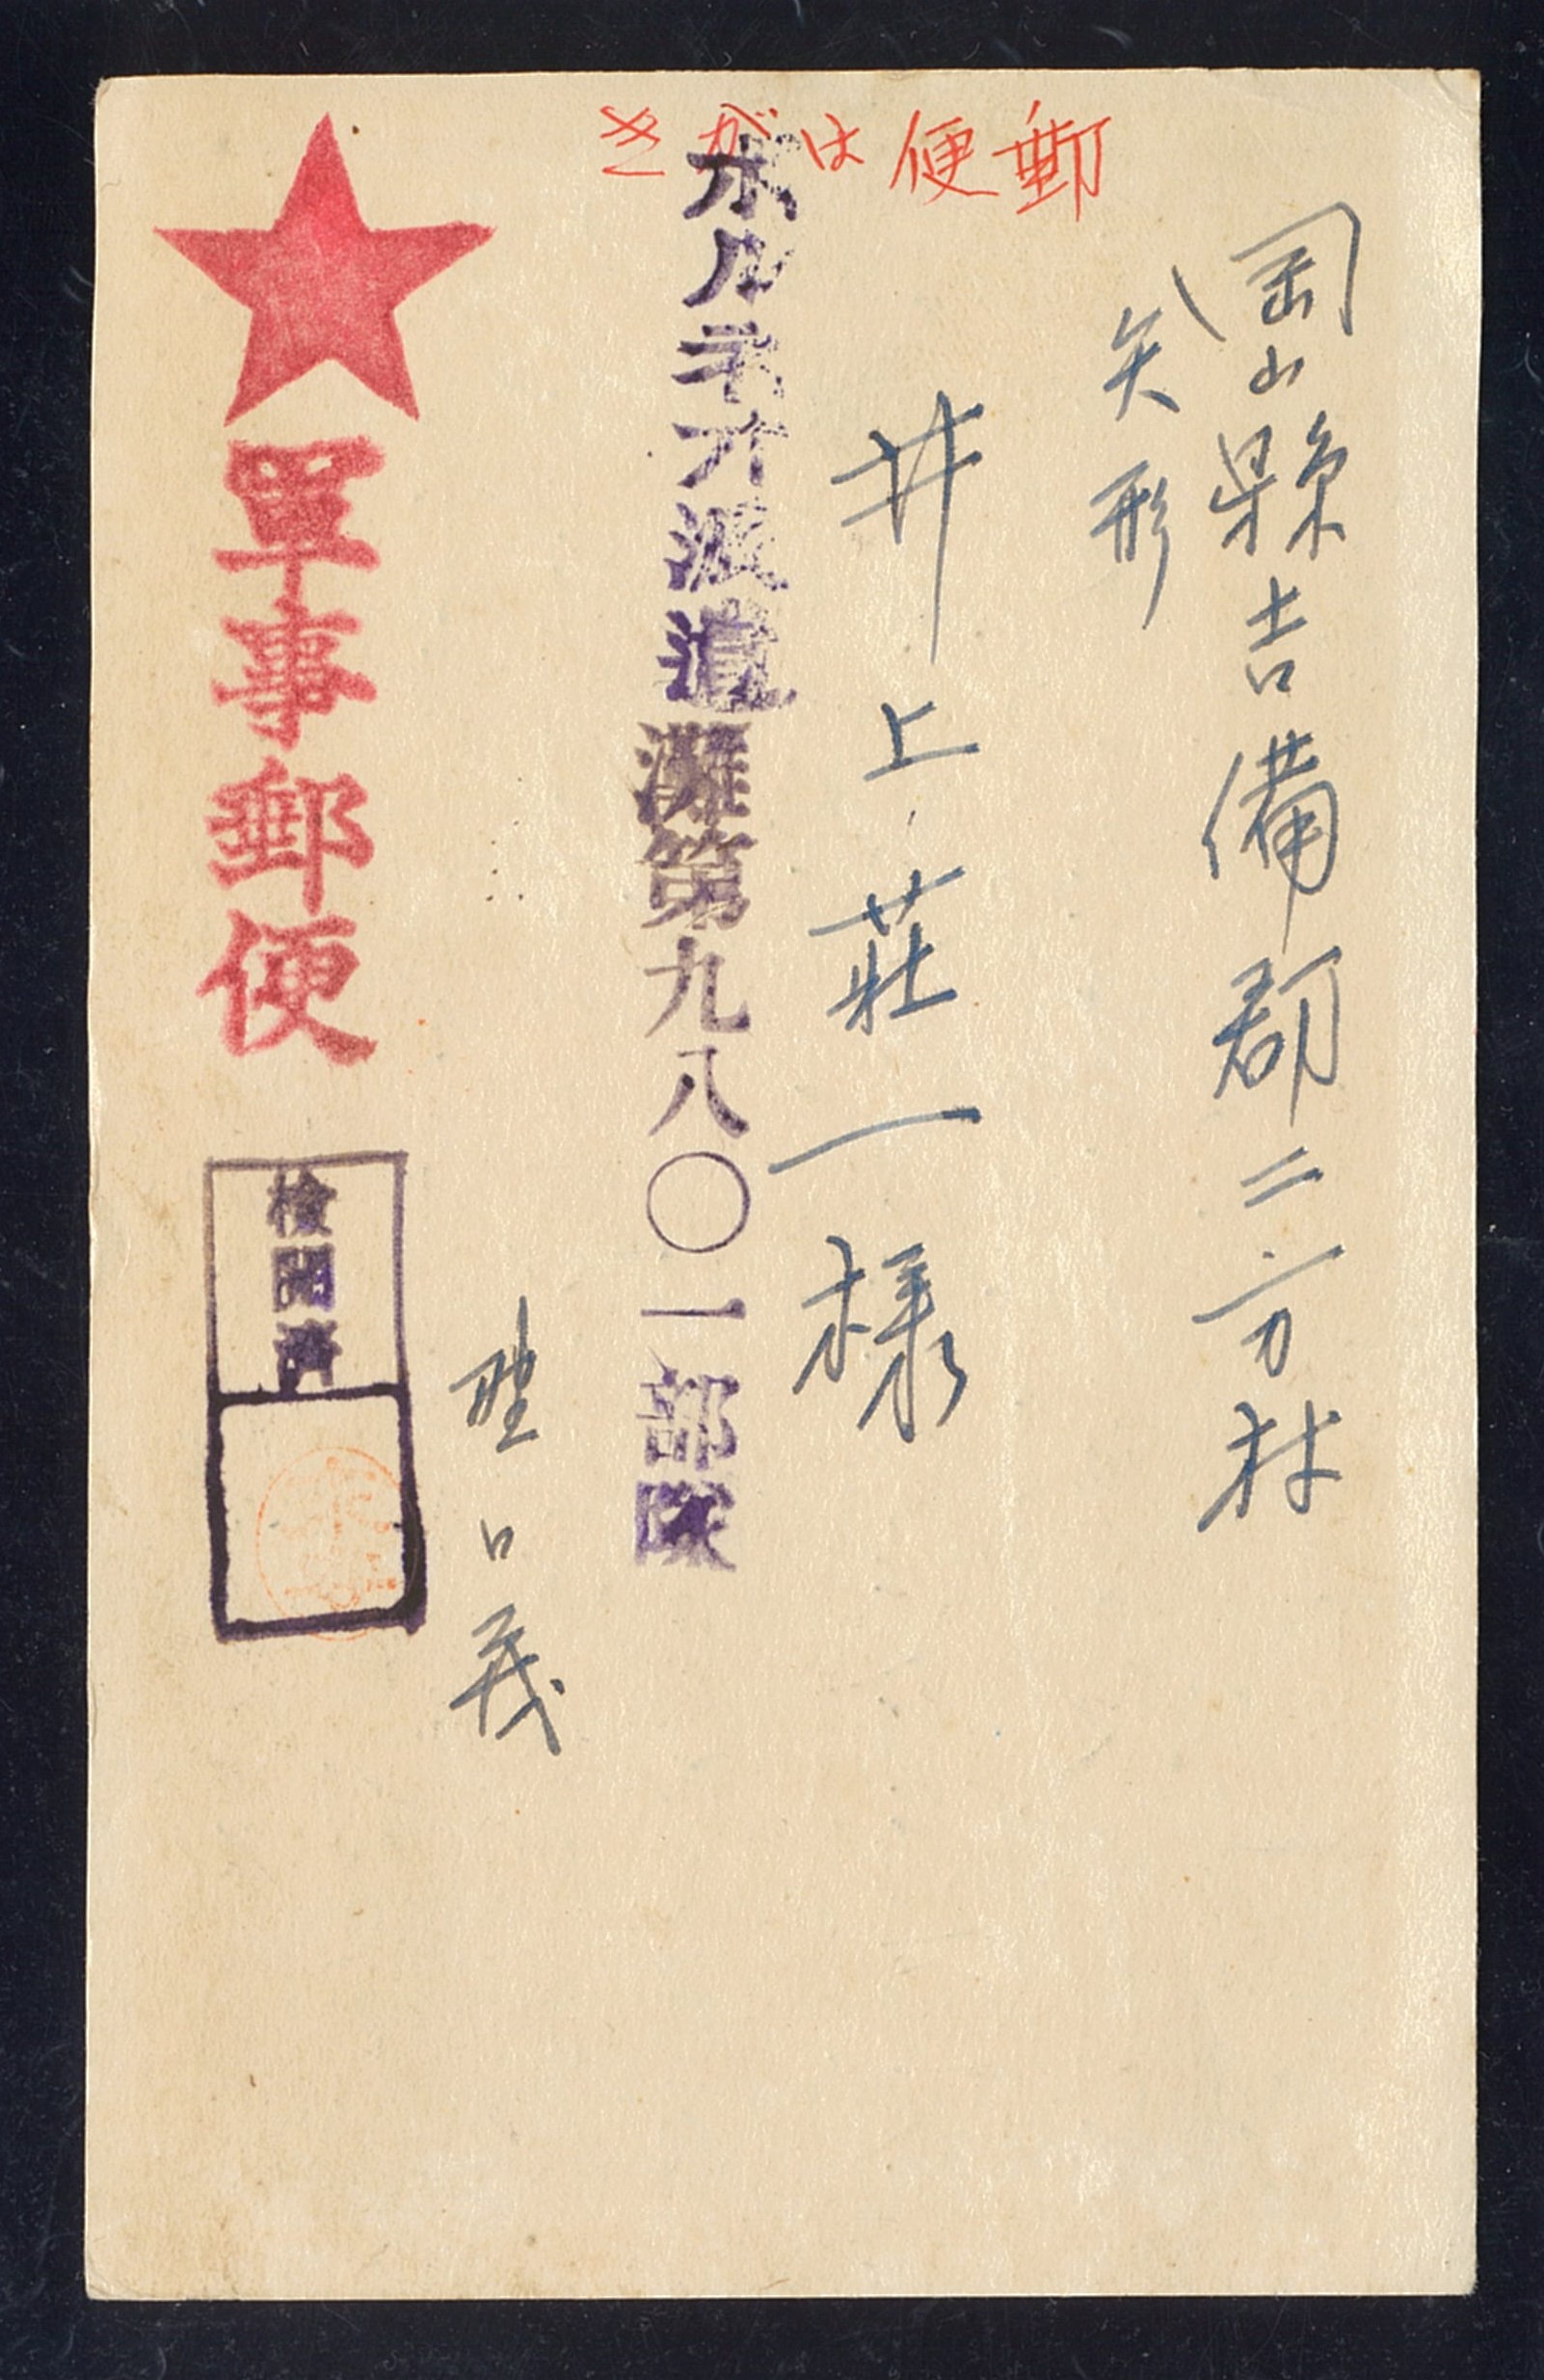 郵便はがき
岡山縣吉備郡二万村
矢形
井上荘一様
ボルネオ派遣灘第九八〇一部隊
野口義
軍事郵便
検閲済